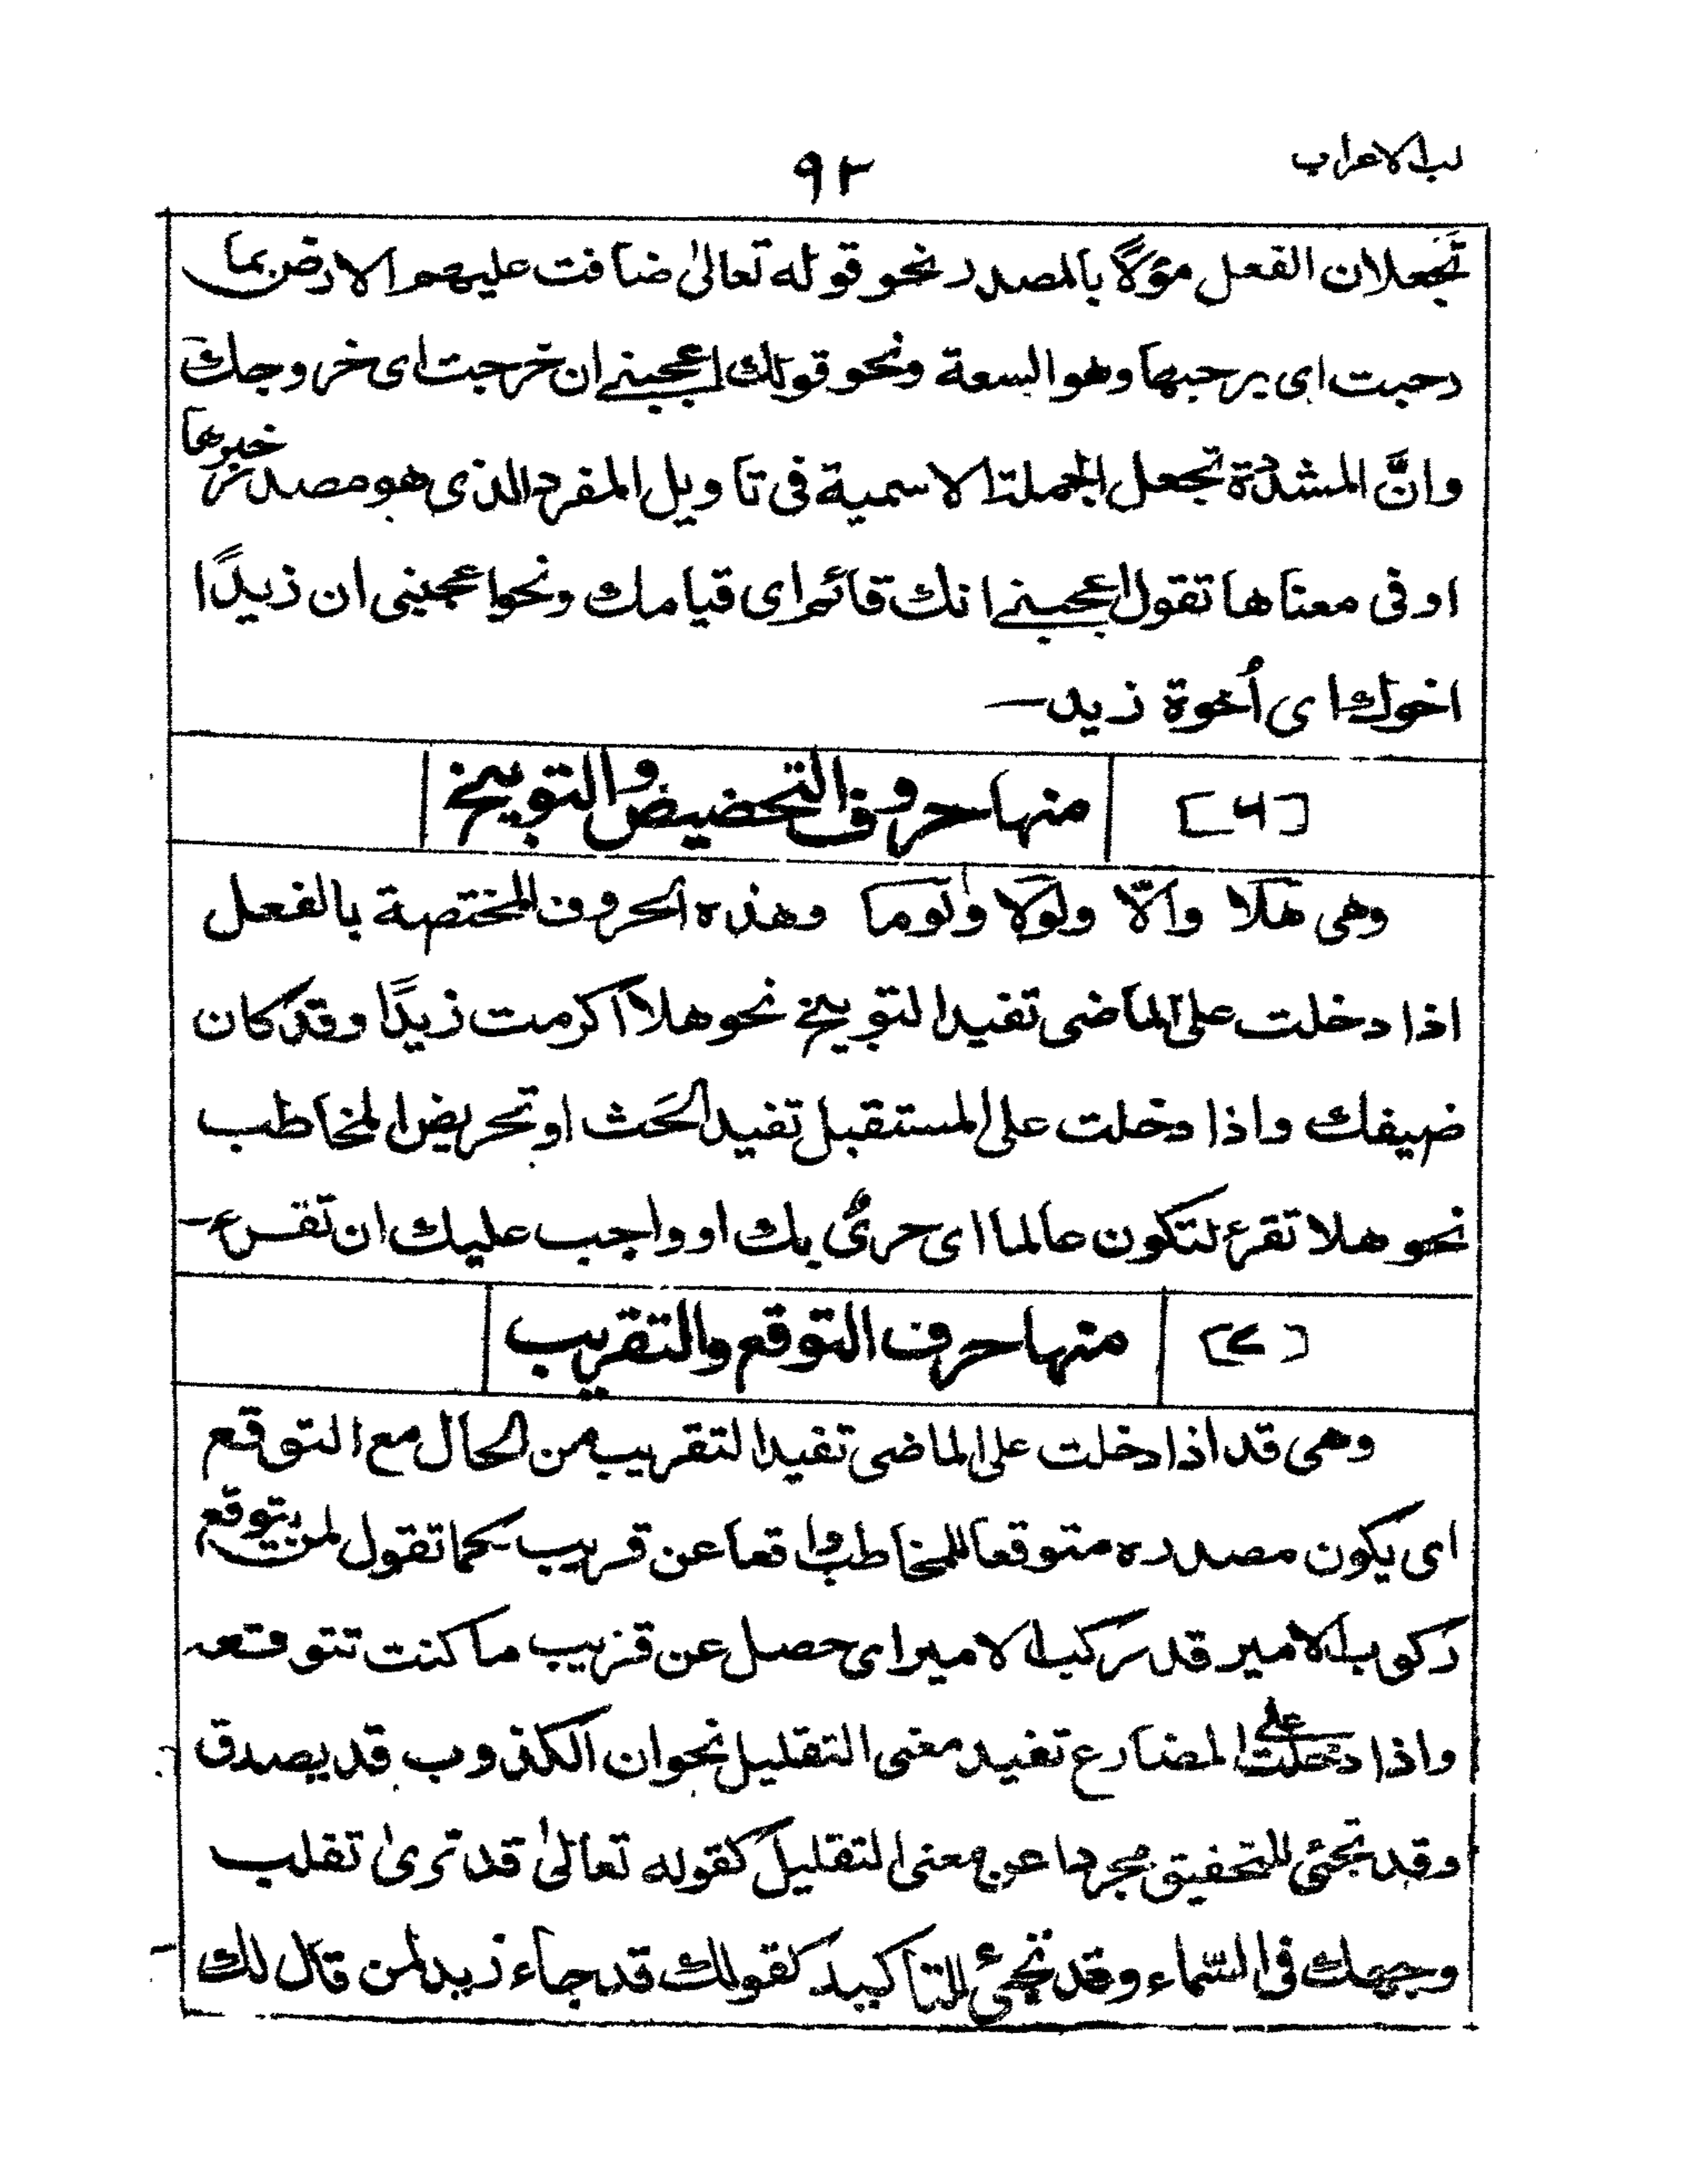 لب الاعراب
٩٢
تَجعلان الفعل مؤلًا بالمصدر نحو قوله تعالىٰ ضاقت عليهم الارض بما
رحبت اى برحبها وهو السعة ونحو قولك اعجبنے ان خرجت اى خروجك
وانَّ المشدّدة تجعل الجملة الاسمية فى تاويل المفرد الذى هو مصدر خبرها
او فى معناها تقول اعجبنے انك قائم اى قيامك ونحو اعجبنى ان زيدًا
اخوك اى اُخوة زيد—
[٦] منها حروف التحضيض والتوبيخ
وهى هَلّا واَلّا ولَولا ولَوما وهذه الحروف المختصة بالفعل
اذا دخلت على الماضى تفيد التوبيخ نحو هلا اكرمت زيدًا وقد كان
ضيفك واذا دخلت على المستقبل تفيد الحَث او تحريض المخاطب
نحو هلا تقرء لتكون عالما اى حرىٌ بك او واجب عليك ان تقرء—
[٧] منها حرف التوقع والتقريب
وهى قد اذا دخلت على الماضى تفيد التقريب من الحال مع التوقع
اى يكون مصدره متوقعا للمخاطب واقعا عن قريب كما تقول لمن يتوقع
ركوب الامير قد ركب الامير اى حصل عن قريب ما كنت تتوقعه
واذا دخلت على المضارع تفيد معنى التقليل نحو ان الكذوب قد يصدق
وقد تجئى للتحقيق مجردا عن معنى التقليل كقوله تعالىٰ قد ترىٰ تقلب
وجهك فى السّماء وقد تجئى للتاكيد كقولك قد جاء زيد لمن قال لك